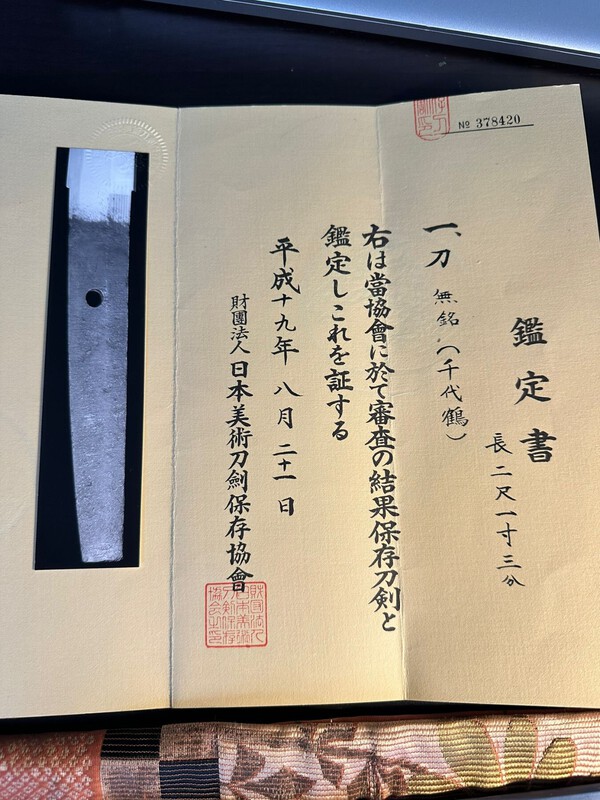 № 378420
鑑定書
長二尺一寸三分
一、刀 無銘(千代鶴)
右は當協會に於て審査の結果保存刀剣と
鑑定しこれを証する
平成十九年八月二十一日
財團法人日本美術刀劍保存協會
財団法人日本美術刀剣保存協会之印